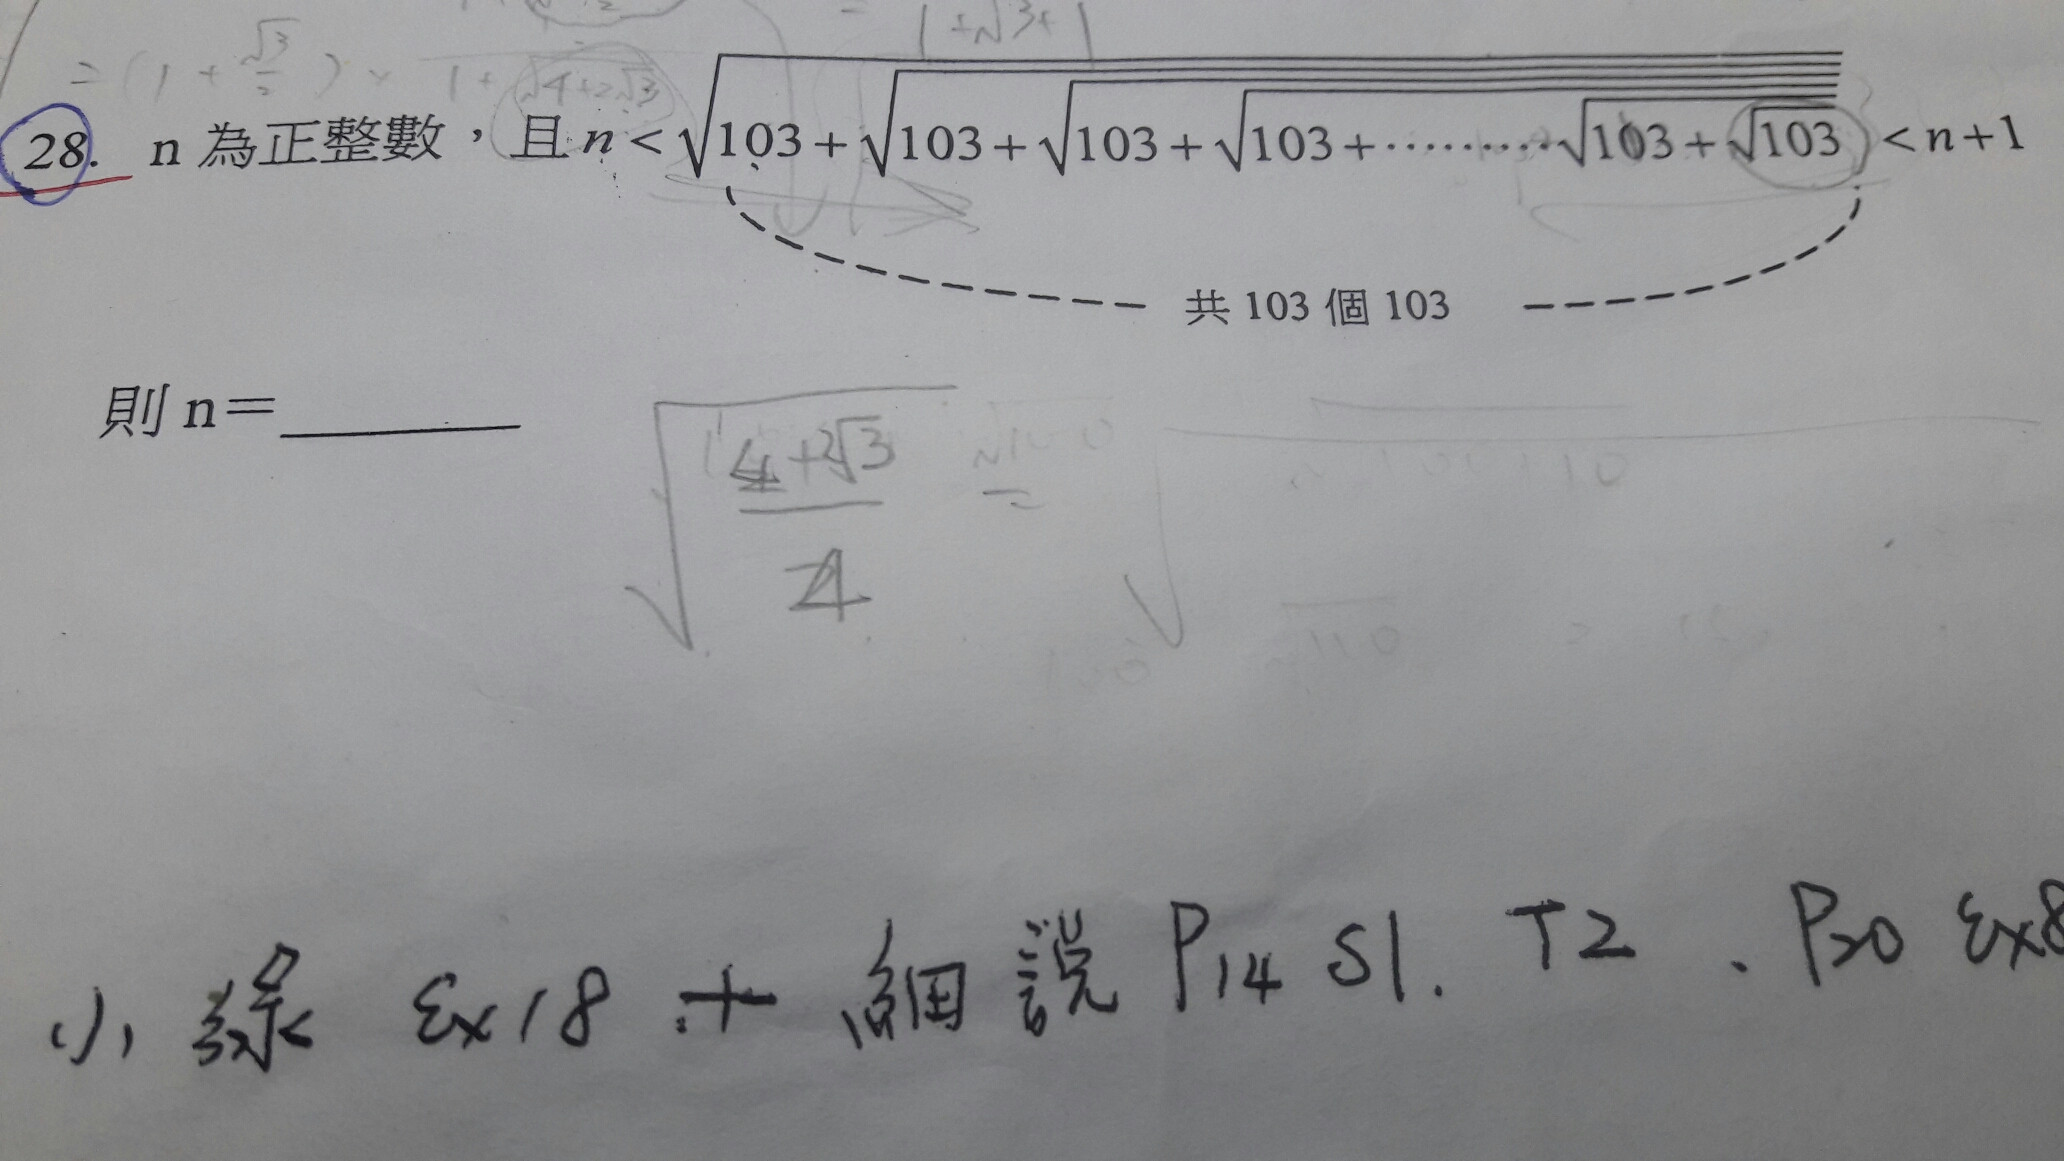 1+√3+1
=(1+√3/2)× 1+√4+2√3
28. n 為正整數，且 n < √103+√103+√103+√103+·········√103+√103 < n+1
共 103 個 103
則 n=______
√4+2√3/4
小 綠 Ex18 + 細說 P14 S1. T2 、P20 Ex8